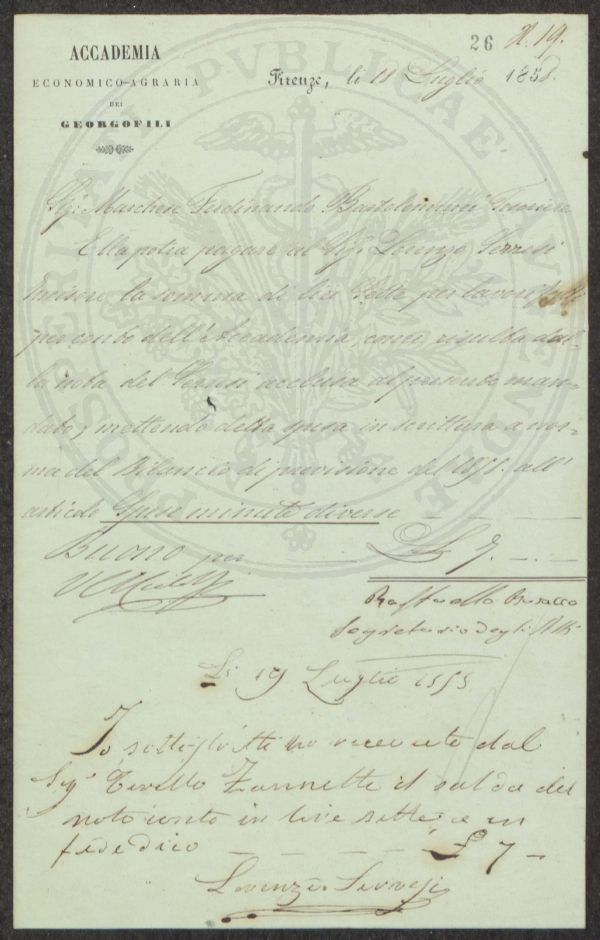 26 N. 19.
ACCADEMIA
ECONOMICO-AGRARIA
DEI
GEORGOFILI
PROSPERITATI PVBLICAE AVGENDAE
Firenze, li 18 Luglio 1858.
Sig: Marchese Ferdinando Bartolommei Tesoriere
Ella potrà pagare al Sig. Lorenzo
la somma di lire Sette per lavori fatti
per conto dell'Accademia, come risulta dal-
la nota del acclusa al presente man-
dato, mettendo detta spesa in scrittura a nor-
ma del Bilancio di previsione del 1858. all'
articolo Spese minute diverse
Buono per £ 7. -. -
Raffaello Busacca
Segretario degli Atti
Li 19 Luglio 1858
Io sotto ho ricevuto dal
Sig. Zannetti il saldo del
noto conto in lire sette e in
fede dico £ 7 -
Lorenzo